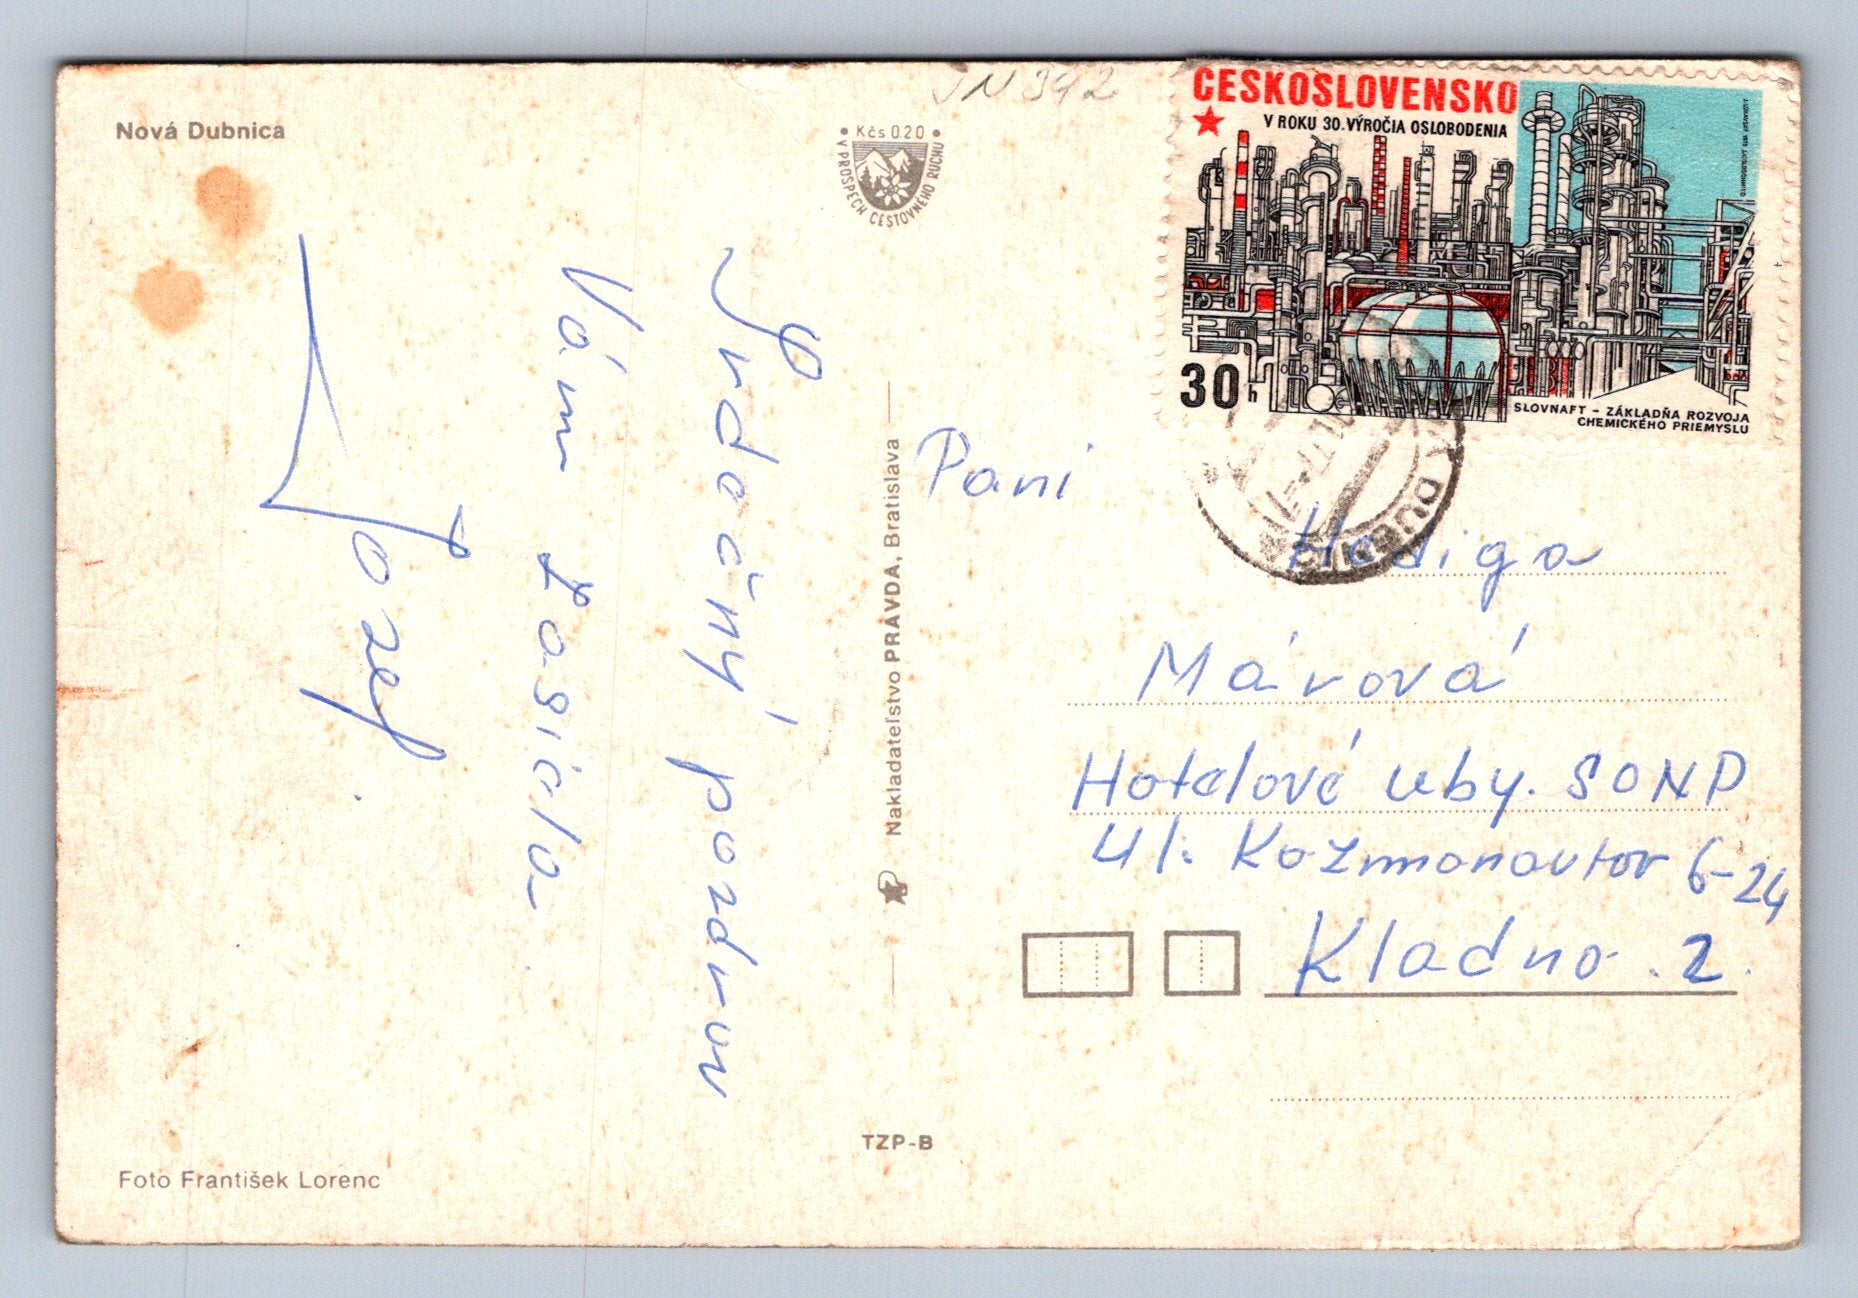 Nová Dubnica
Kčs 0.20
V PROSPECH CESTOVNÉHO RUCHU
JN 392
ČESKOSLOVENSKO
V ROKU 30. VÝROČIA OSLOBODENIA
30 h
SLOVNAFT – ZÁKLADŇA ROZVOJA
CHEMICKÉHO PRIEMYSLU
DUBNICA
Srdečný pozdrav
Vám zasiela
Jozef
Nakladateľstvo PRAVDA, Bratislava
Pani
Hediga
Márová
Hotelové uby. SONP
Ul: Kozmonavtov 6-24
Kladno. 2.
TZP-B
Foto František Lorenc